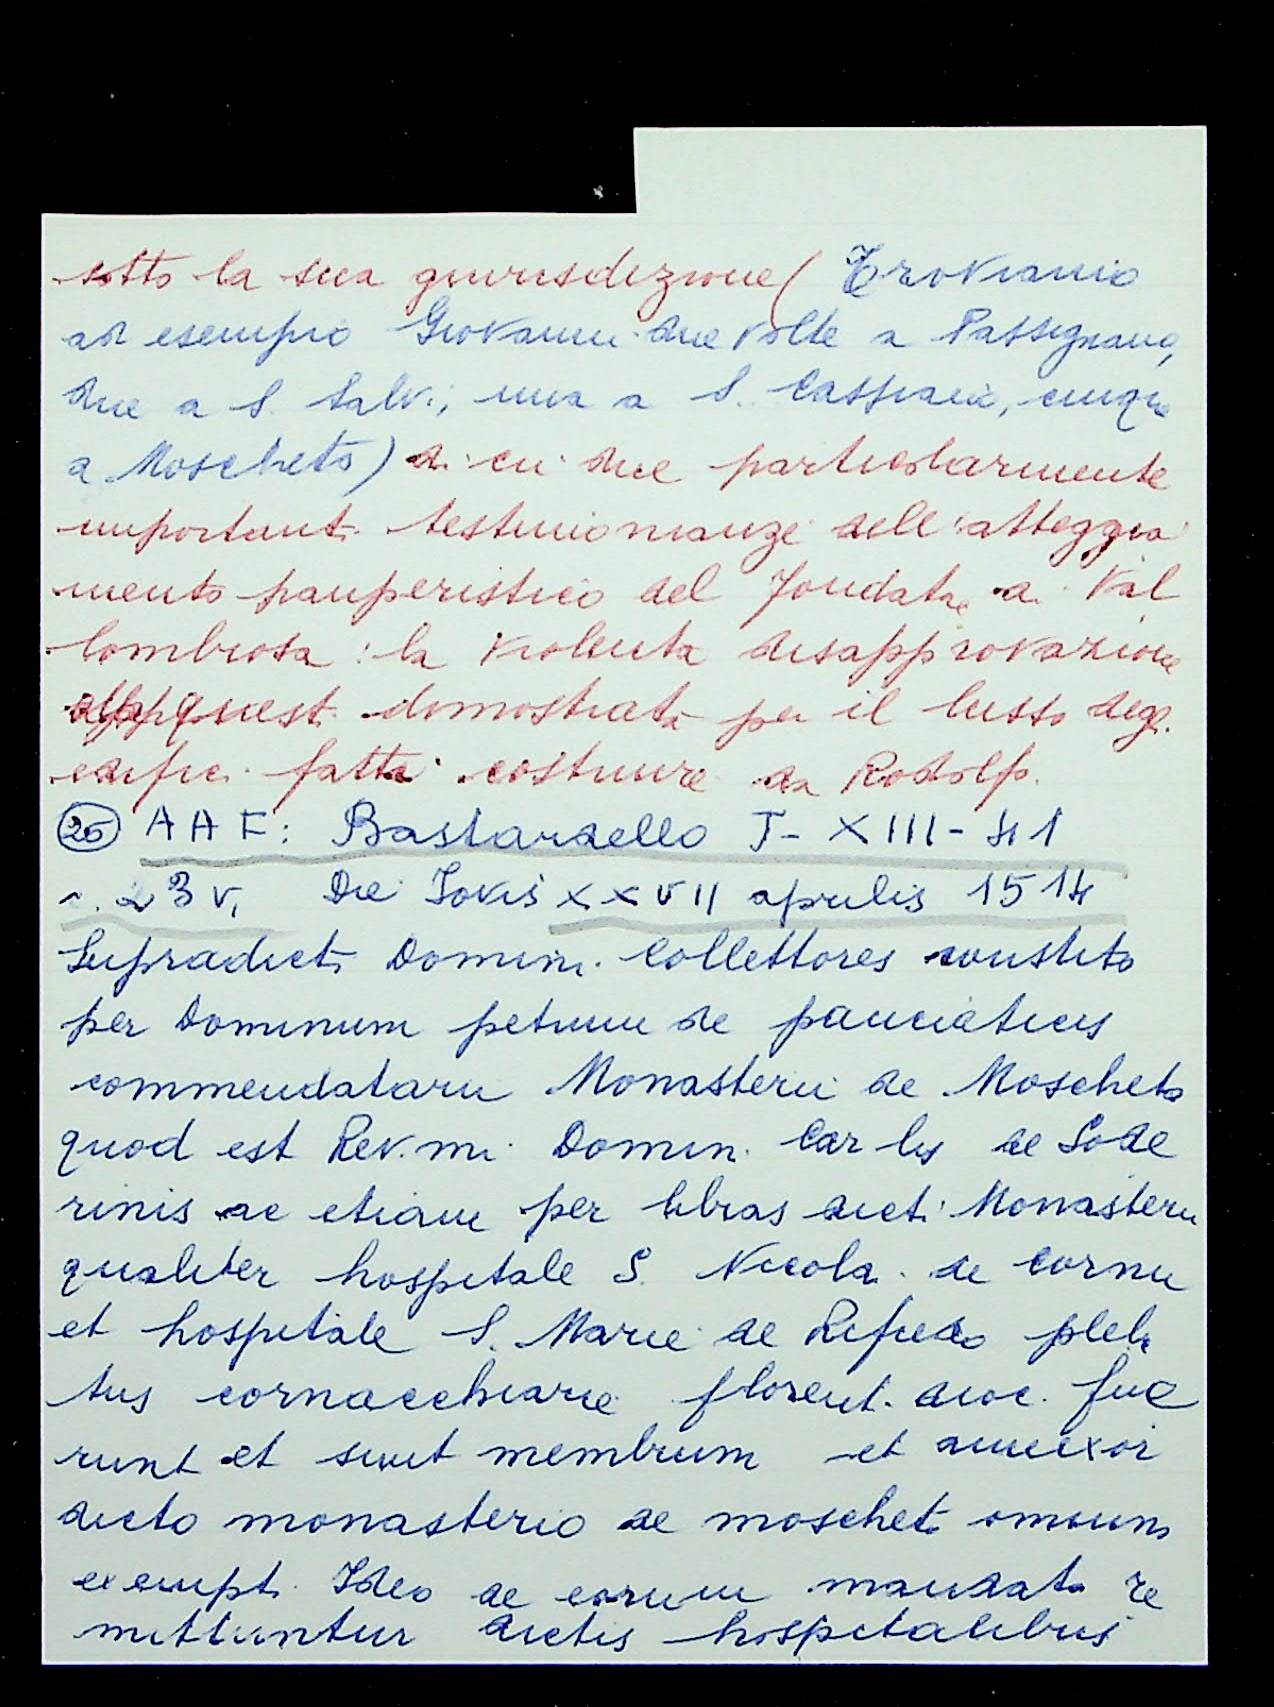 sotto la sua giurisdizione ( Troviamo
ad esempio Giovanni due volte a Passignano,
due a S. Salvi, una a S. Cassiano, cinque
a Moscheto) di cui due particolarmente
importanti testimonianze dell'atteggia
mento pauperistico del fondatore di Val
lombrosa: la violenta disapprovazione
quest dimostrata per il lusso degli
edifici fatti costruire da Rodolfo.
26 AAF: Bastardello T- XIII- 41
c. 23 v, Die Jovis XXVII aprilis 1514
Supradicti Domini Collettores constito
per Dominum petrum de panciaticis
commendatarii Monasterii de Moscheto
quod est Rev.mi Domini Car lis de Sode
rinis ac etiam per libras dicti Monasterii
qualiter hospitale S. Nicolai de Cornu
et hospitale S. Marie de Rifredo pleba
tus cornacchiarie florent. dioc. fue
runt et sunt membrum et annexor
dicto monasterio de moscheto omnino
exempti Ideo de eorum mandato re
mittuntur dictis hospitalibus